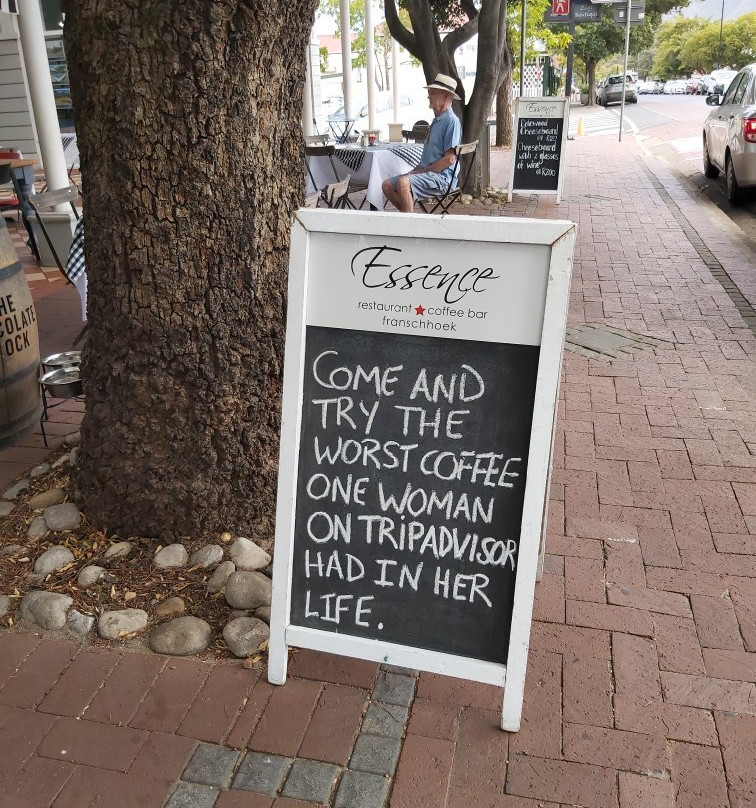 Essence
restaurant ★ coffee bar
franschhoek
COME AND
TRY THE
WORST COFFEE
ONE WOMAN
ON TRIPADVISOR
HAD IN HER
LIFE.
Essence
Cheeseboard
at R120
Cheeseboard
with 2 glasses
of wine
at R200
HE
COLATE
OCK
Boutique